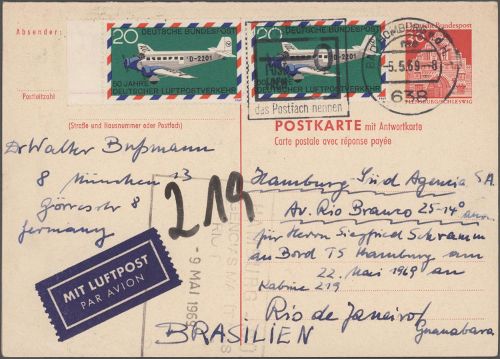 Absender:
Postleitzahl
(Straße und Hausnummer oder Postfach)
20 DEUTSCHE BUNDESPOST
D-2201
50 JAHRE
DEUTSCHER LUFTPOSTVERKEHR
20 DEUTSCHE BUNDESPOST
D-2201
50 JAHRE
DEUTSCHER LUFTPOSTVERKEHR
das Postfach nennen
BAD HOMBURG v.d.H.
-5.5.69-8
638
Deutsche Bundespost
FLENSBURG/SCHLESWIG
POSTKARTE mit Antwortkarte
Carte postale avec réponse payée
Dr Walter Bußmann
8 München 13
Görresstr 8
Germany
219
MIT LUFTPOST
PAR AVION
- 9 MAI 1969
Hamburg-Süd Agencia SA
Av. Rio Branco 25-14° anor.
für Herrn Siegfried Schramm
an Bord TS Hamburg am
22. Mai 1969 an
Kabine 219
Rio de Janeiro/
Guanabara
BRASILIEN